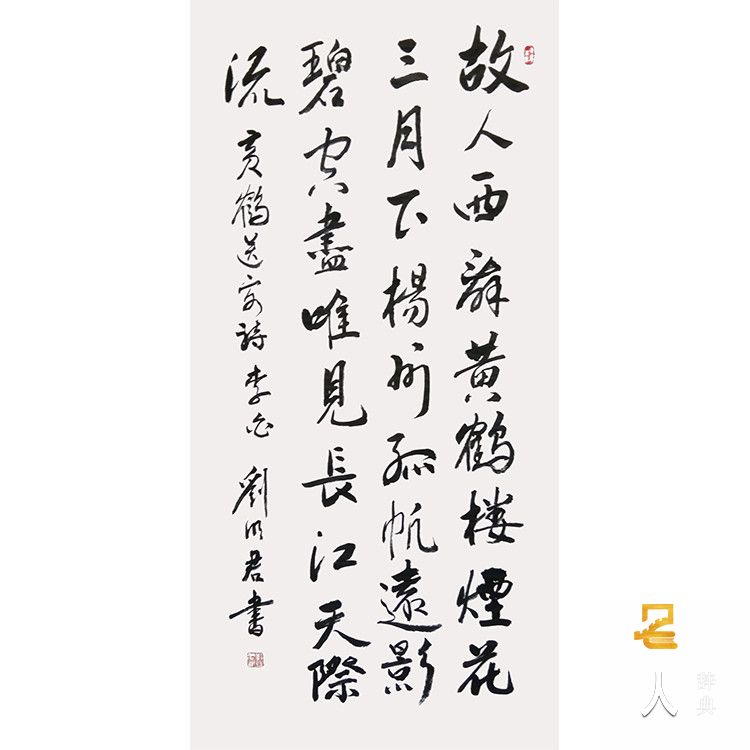 故人西辭黄鶴楼煙花
三月下楊州孤帆遠影
碧空盡唯見長江天際
流 黄鶴送客詩李白 劉明君書
人
辞典